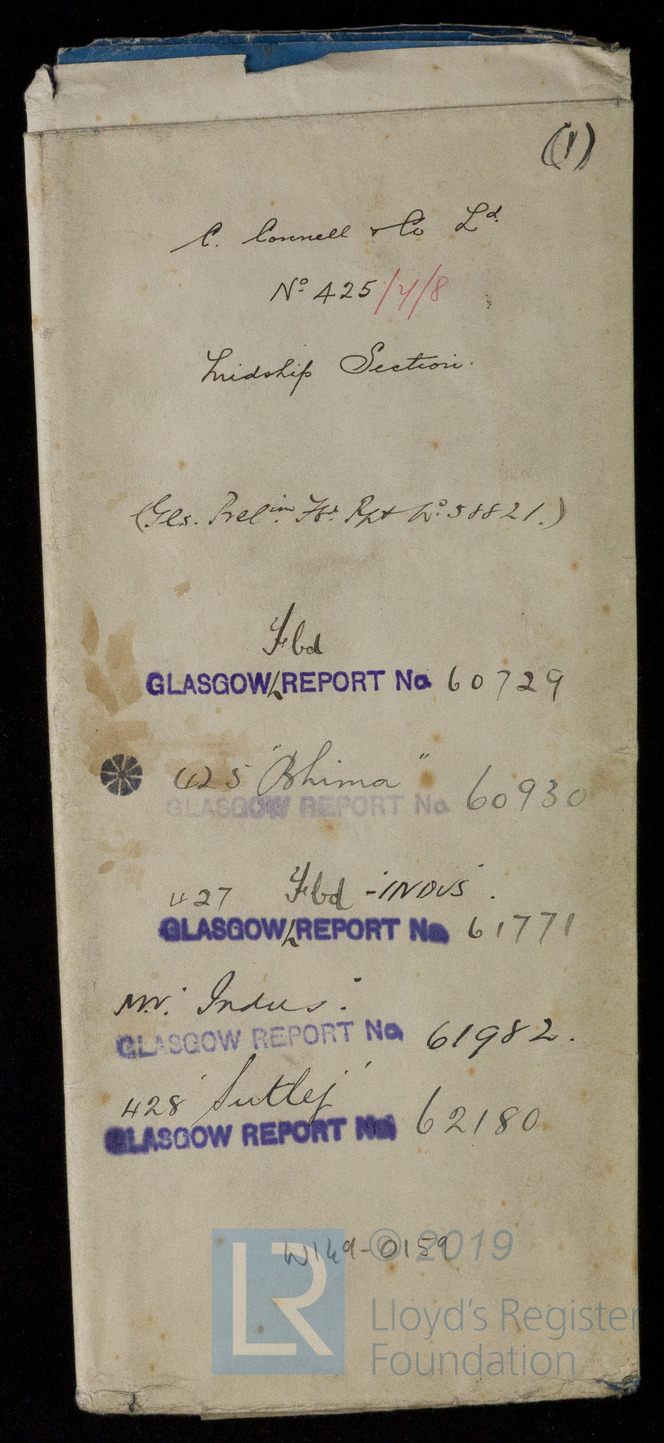 (1)
C. Connell & Co Ld.
No 425/7/8
Midship Section.
(Gls. Prelim. Fbd. Rpt No 58821.)
Fbd
GLASGOW REPORT No 60729
425 "Bhima"
GLASGOW REPORT No 60930
427 Fbd - "INDUS".
GLASGOW REPORT No 61771
M.V. "Indus".
GLASGOW REPORT No 61982.
428 "Sutlej"
GLASGOW REPORT No 62180
W149-0159
© 2019
LR
Lloyd's Register
Foundation